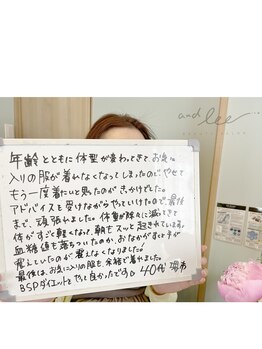 and lee
年齢とともに体型が変わってきて、お気に
入りの服が着れなくなってしまったので、やせて
もう一度着たいと思ったのが、きっかけでした。
アドバイスを受けながらやっていけたので、最後
まで、頑張れました。体重が除々に減ってきて
体がすごく軽くなって、朝もスッと起きれています。
血糖値も落ちついたのか、おなかがすくと手が
震えていたのが震えなくなりました!
最後は、お気に入りの服も余裕で着れました。
BSPダイエットをやって良かったです。40代